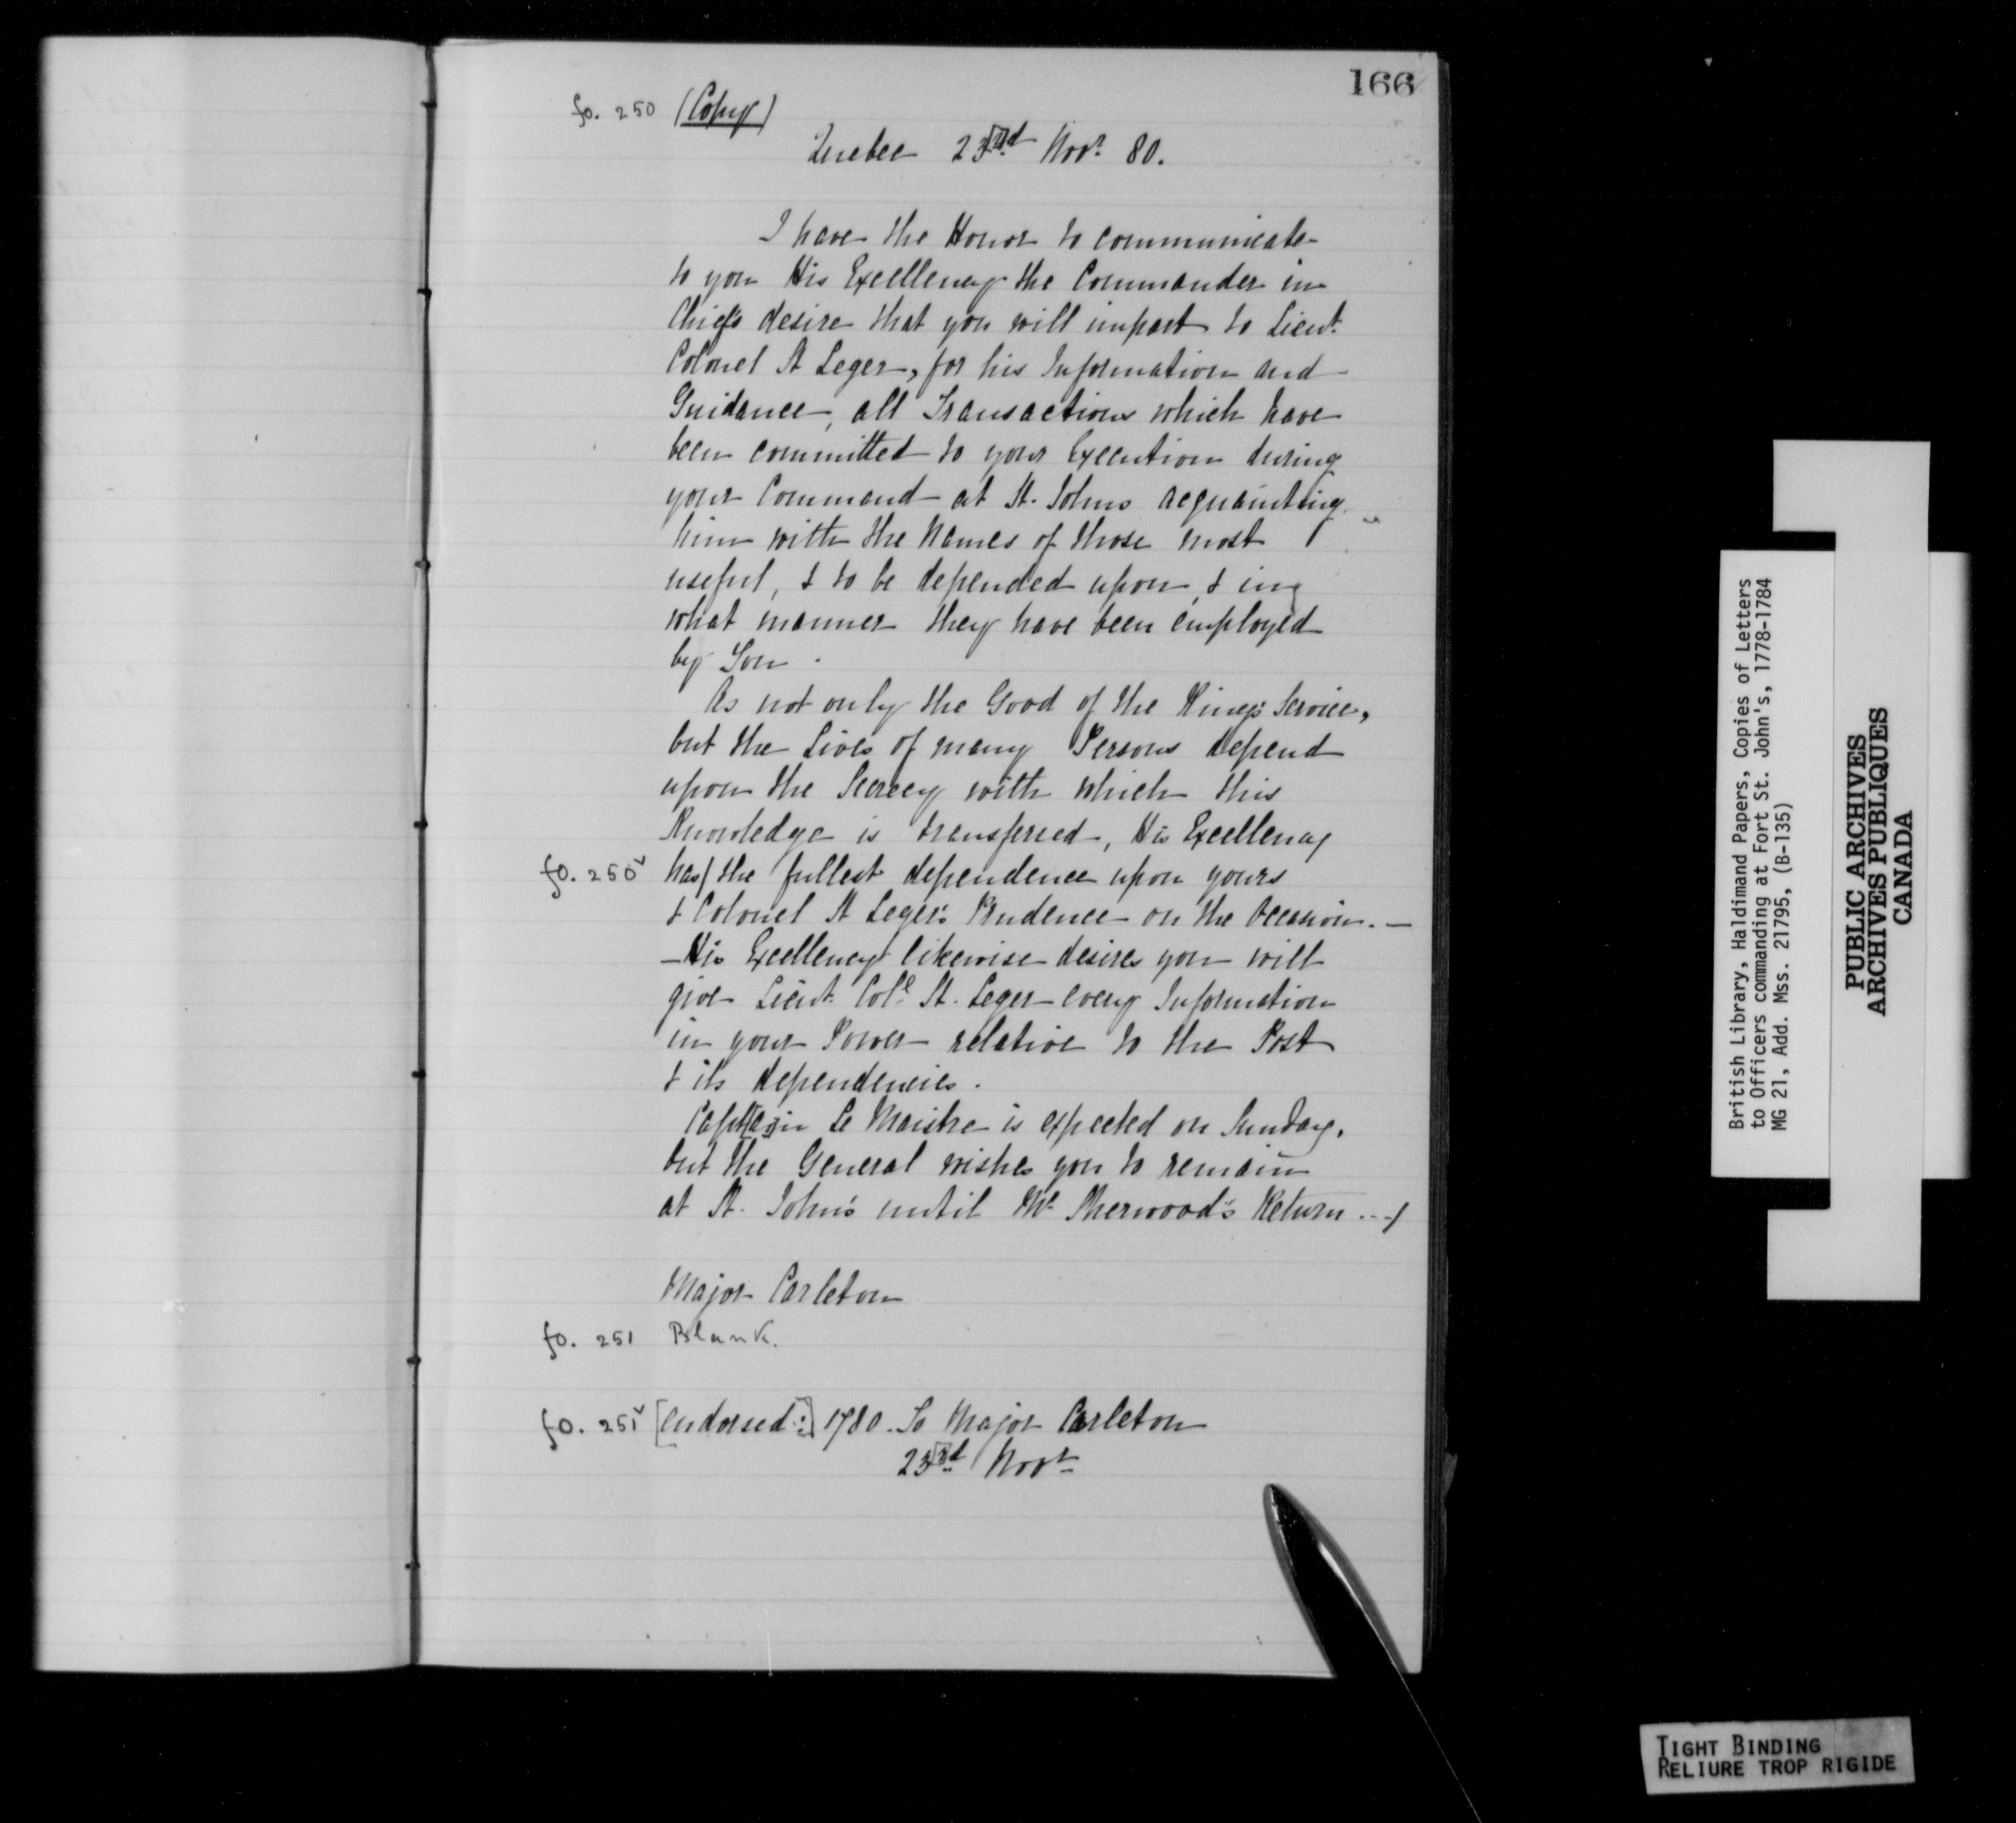 166
fo. 250 (Copy)
Quebec 23[r]d Novr. 80.
I have the Honor to communicate
to you His Excellency the Commander in
Chief's desire that you will impart to Lieut.
Colonel St Leger, for his Information and
Guidance, all Transactions which have
been committed to your Execution during
your Command at St. Johns acquainting
him with the Names of those most
useful, & to be depended upon, & in
what manner they have been employed
by You.
As not only the Good of the King's Service,
but the Lives of many Persons depend
upon the Secrecy with which this
Knowledge is transferred, His Excellency
fo. 250v has/ the fullest dependence upon yours
& Colonel St Leger's Prudence on the Occasion.—
—His Excellency likewise desires you will
give Lieut. Coll. St. Leger every Information
in your Power relative to the Post
& its dependencies.
Capt[ai]n Le Maistre is expected on Sunday,
but the General wishes you to remain
at St. John's until Mr. Sherwood's Return...
Major Carleton
fo. 251 Blank.
fo. 251v [Endorsed:] 1780. To Major Carleton
23[r]d Novr.
British Library, Haldimand Papers, Copies of Letters
to Officers commanding at Fort St. John's, 1778-1784
MG 21, Add. Mss. 21795, (B-135)
PUBLIC ARCHIVES
ARCHIVES PUBLIQUES
CANADA
TIGHT BINDING
RELIURE TROP RIGIDE